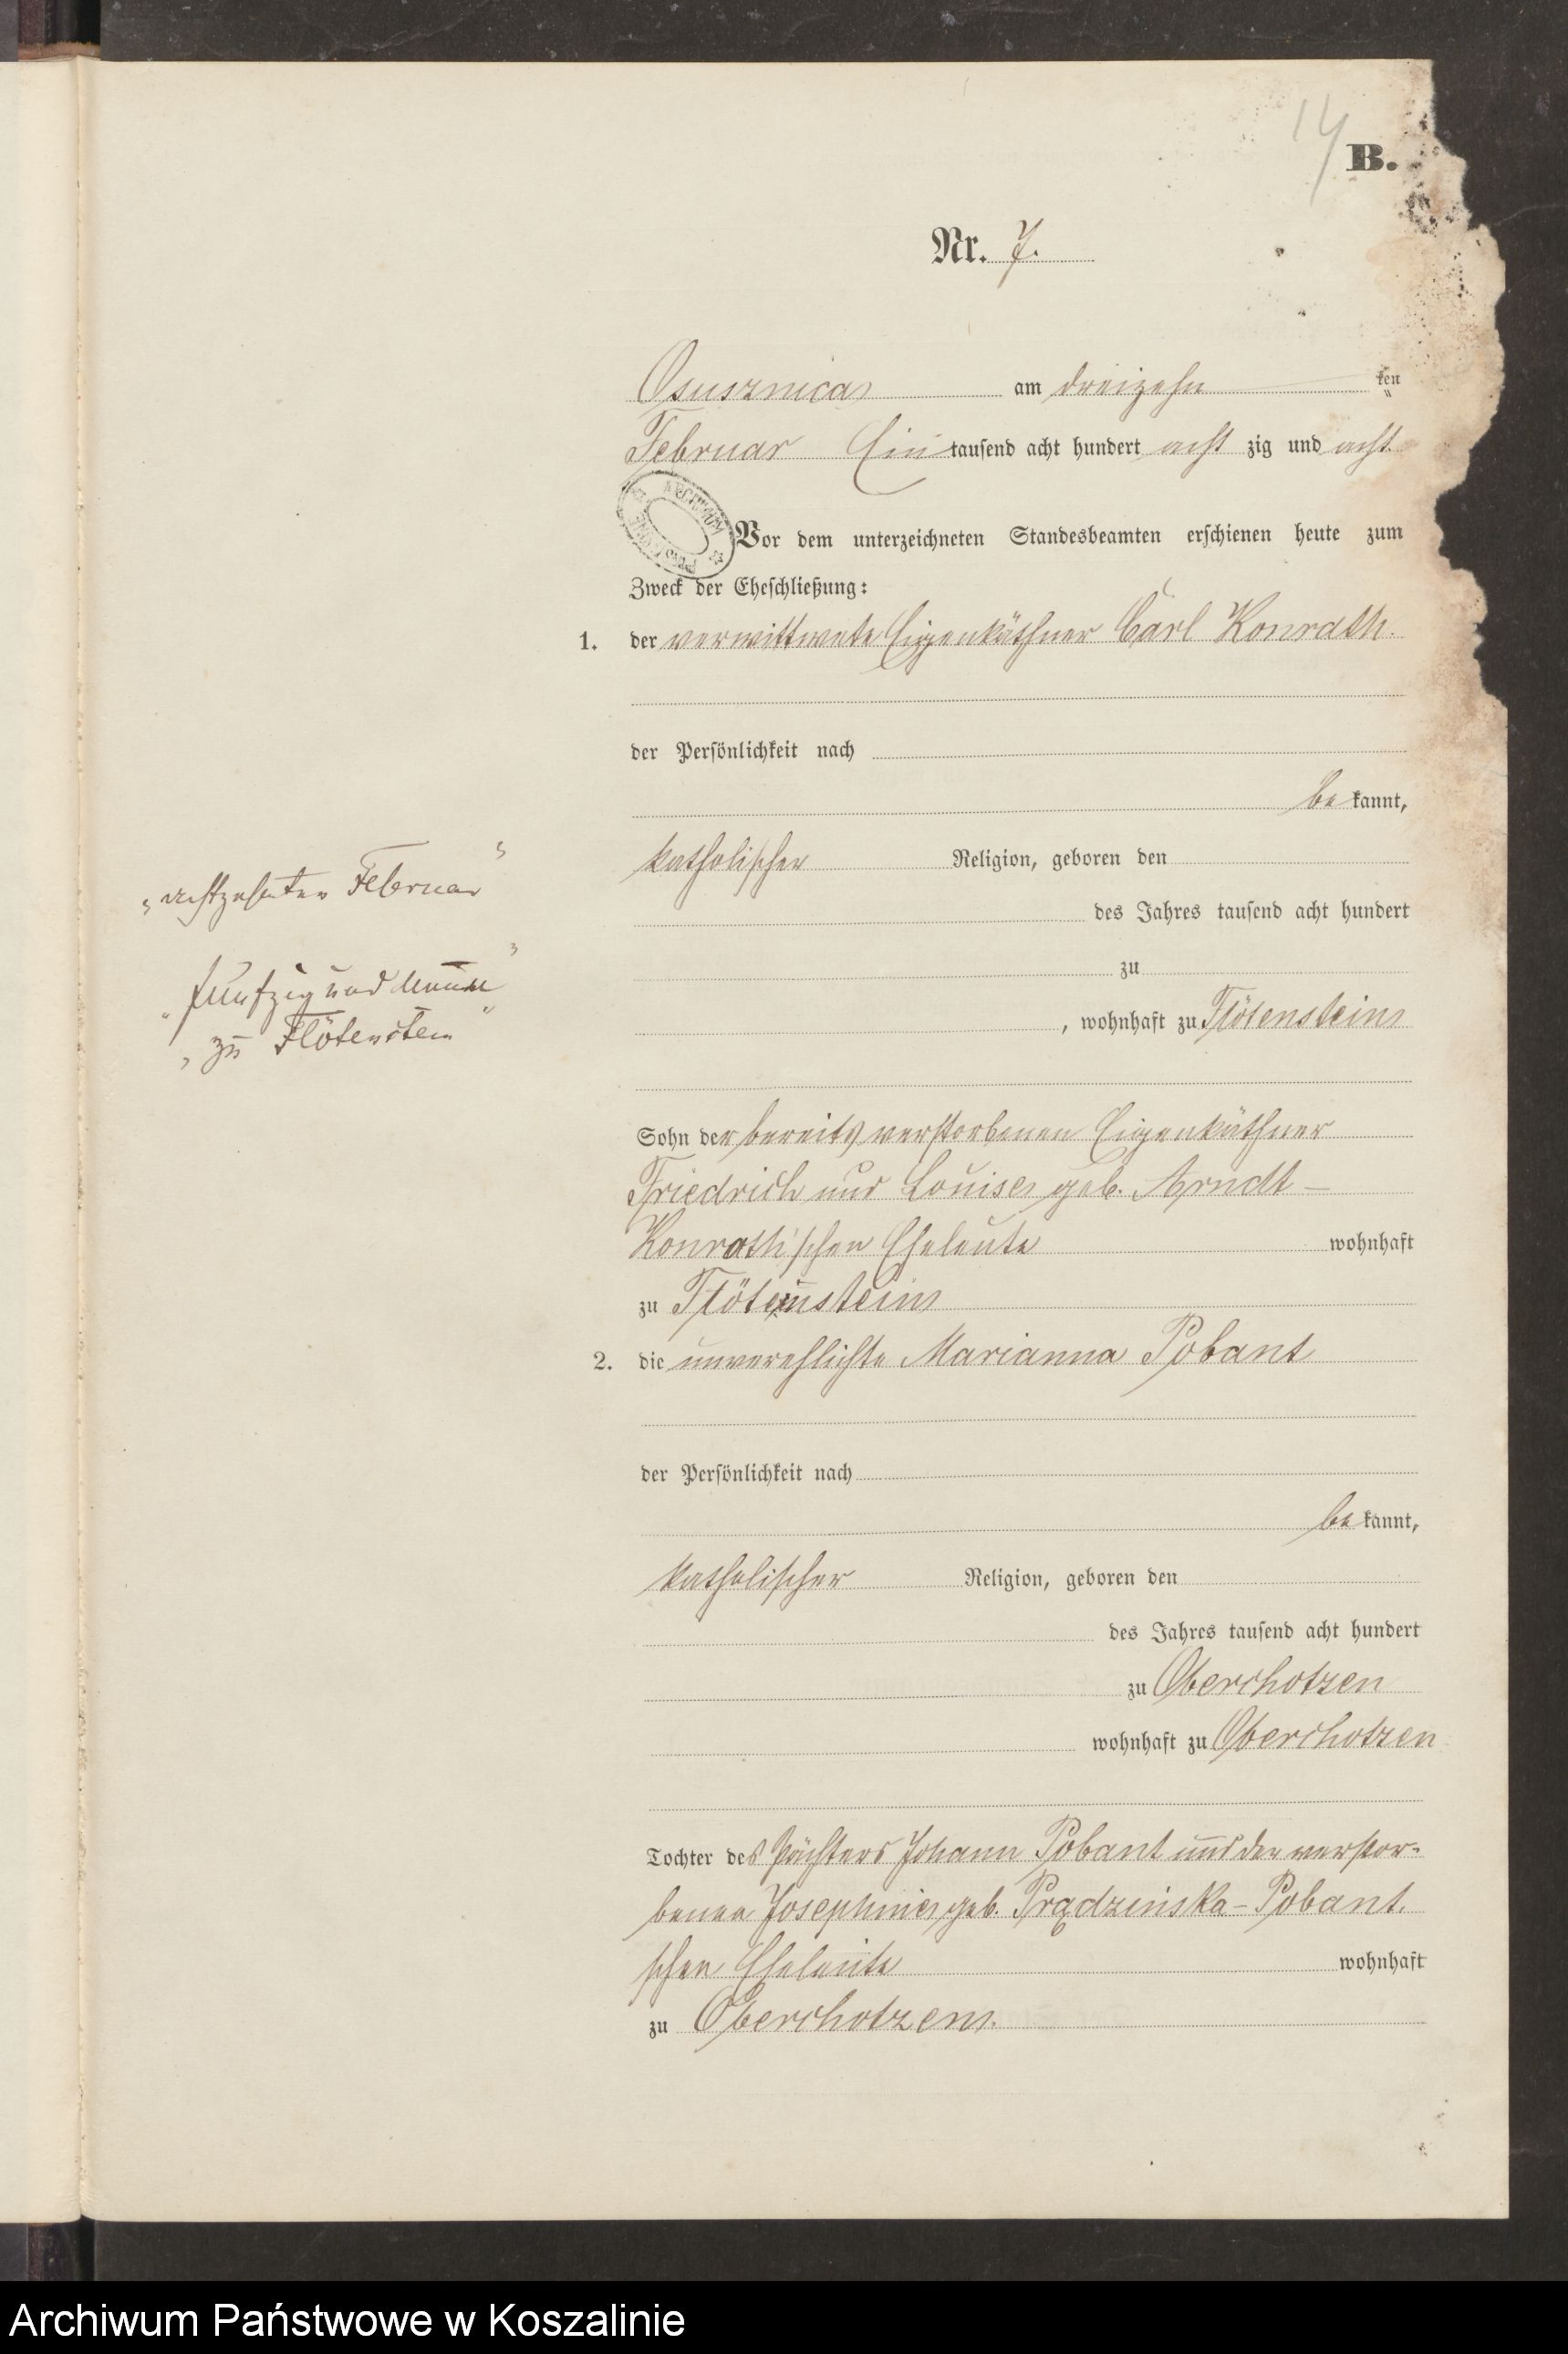 14
B.
Nr. 7.
Osusznica am dreizehn ten
Februar Ein tausend acht hundert acht zig und acht
ARCHIWUM PAŃSTWOWE
Vor dem unterzeichneten Standesbeamten erschienen heute zum
Zweck der Eheschließung:
1. der verwittwete Eigenkäthner Carl Konrath.
der Persönlichkeit nach
be kannt,
katholischer Religion, geboren den
des Jahres tausend acht hundert
zu
, wohnhaft zu Flötenstein
„achtzehnten Februar"
„fünfzig und neun"
„zu Flötenstein"
Sohn der bereits verstorbenen Eigenkäthner
Friedrich und Louise geb. Arndt –
Konrath'schen Eheleute wohnhaft
zu Flötenstein
2. die unverehlichte Marianna Pobant
der Persönlichkeit nach
be kannt,
katholischer Religion, geboren den
des Jahres tausend acht hundert
zu Oberchotzen
wohnhaft zu Oberchotzen
Tochter des Pächters Johann Pobant und der verstor-
benen Josephine geb. Prądzinska – Pobant.
schen Eheleute wohnhaft
zu Oberchotzen.
Archiwum Państwowe w Koszalinie